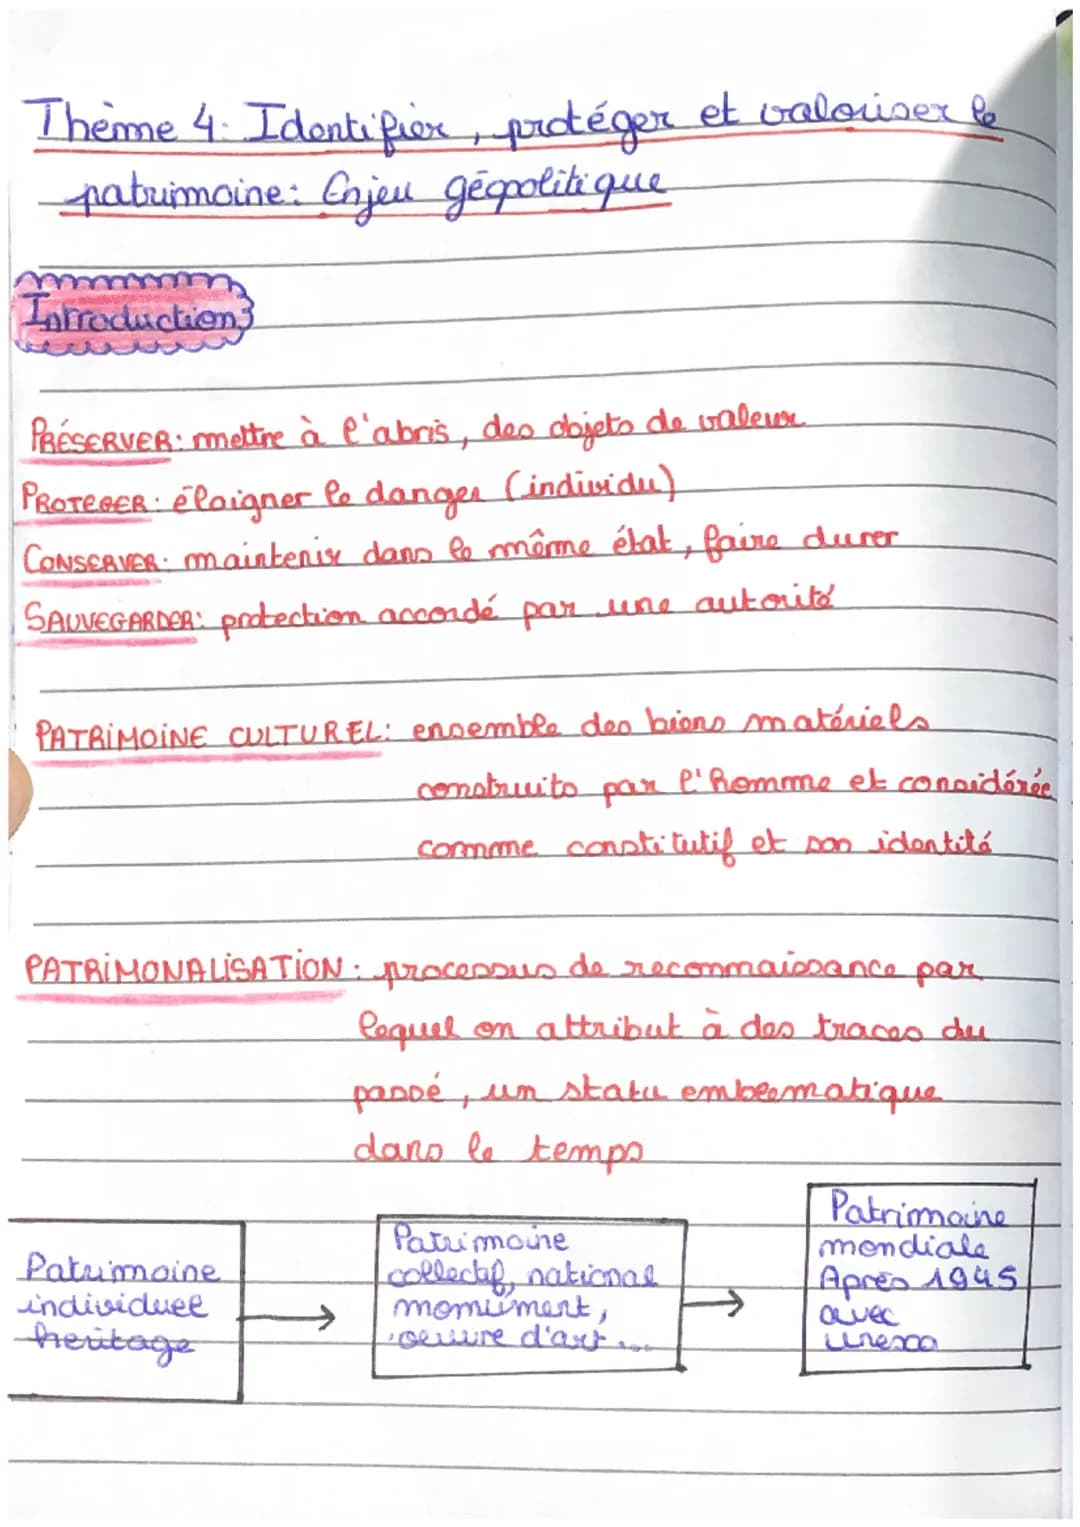 Thème 4: Identifier, protéger et valoriser le
patrimoine: Enjeu géopolitique
Introduction
PRÉSERVER: mettre à l'abris, des objets de valeur
PROTEGER: éloigner le danger (individu)
CONSERVER: maintenir dans le même état, faire durer
SAUVEGARDER: protection accordé par une autorité
PATRIMOINE CULTUREL: ensemble des biens matériels
construits par l'homme et considérée
comme constitutif et son identité
PATRIMONALISATION: processus de reconnaissance par
lequel on attribut à des traces du
passé, un statu embematique
dans le temps
Patrimoine
individuel
heritage
Patrimoine
collectif, national
monument,
oeuvre d'art...
Patrimoine
mondiale
Après 1945
avec
unesco